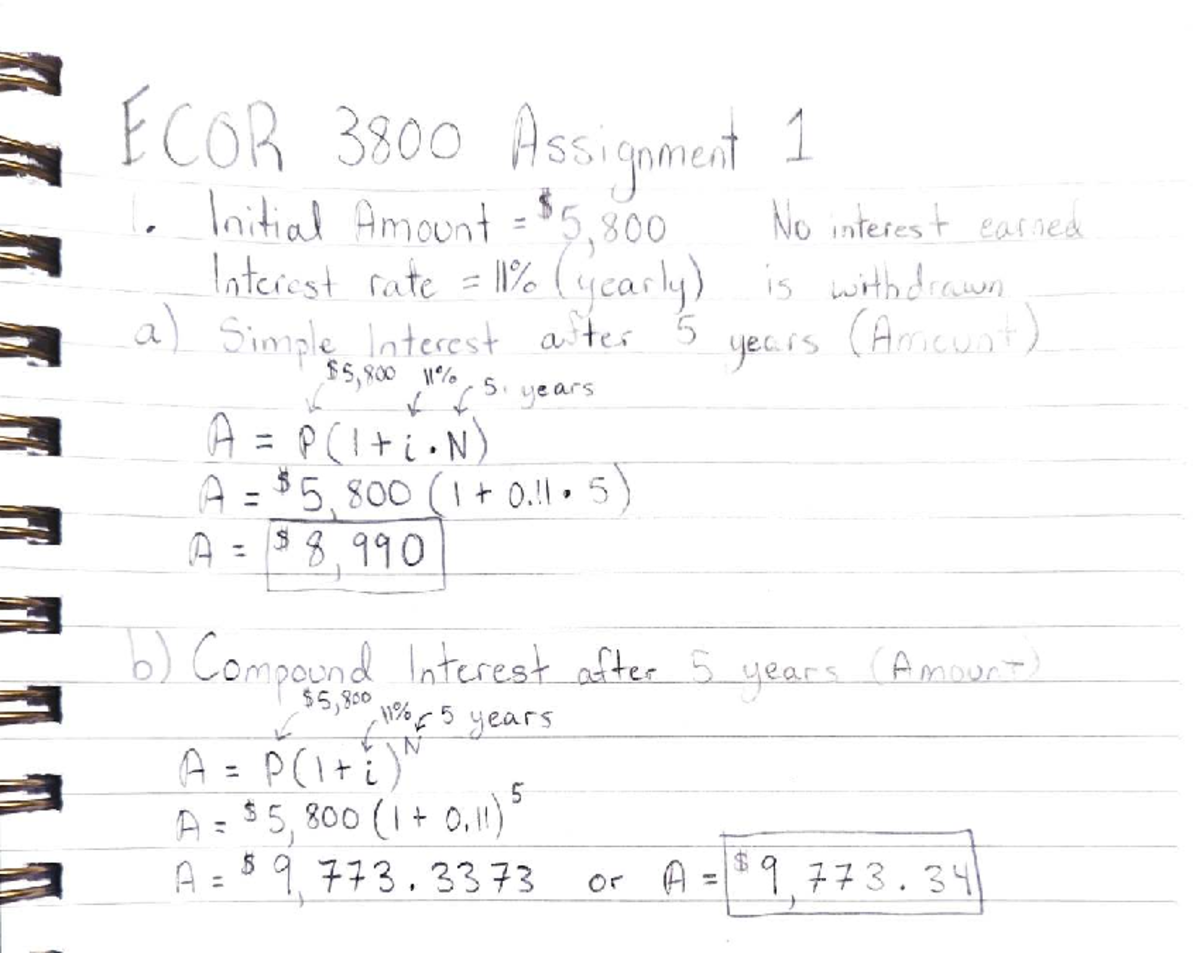 ECOR 3800 Assignment 1
1. Initial Amount = $5,800 No interest earned
Interest rate = 11% (yearly) is withdrawn
a) Simple Interest after 5 years (Amount)
$5,800 11% 5 years
A = P(1 + i · N)
A = $5,800 (1 + 0.11 · 5)
A = $8,990
b) Compound Interest after 5 years (Amount)
$5,800 11% 5 years
A = P(1 + i)^N
A = $5,800 (1 + 0.11)^5
A = $9,773.3373 or A = $9,773.34